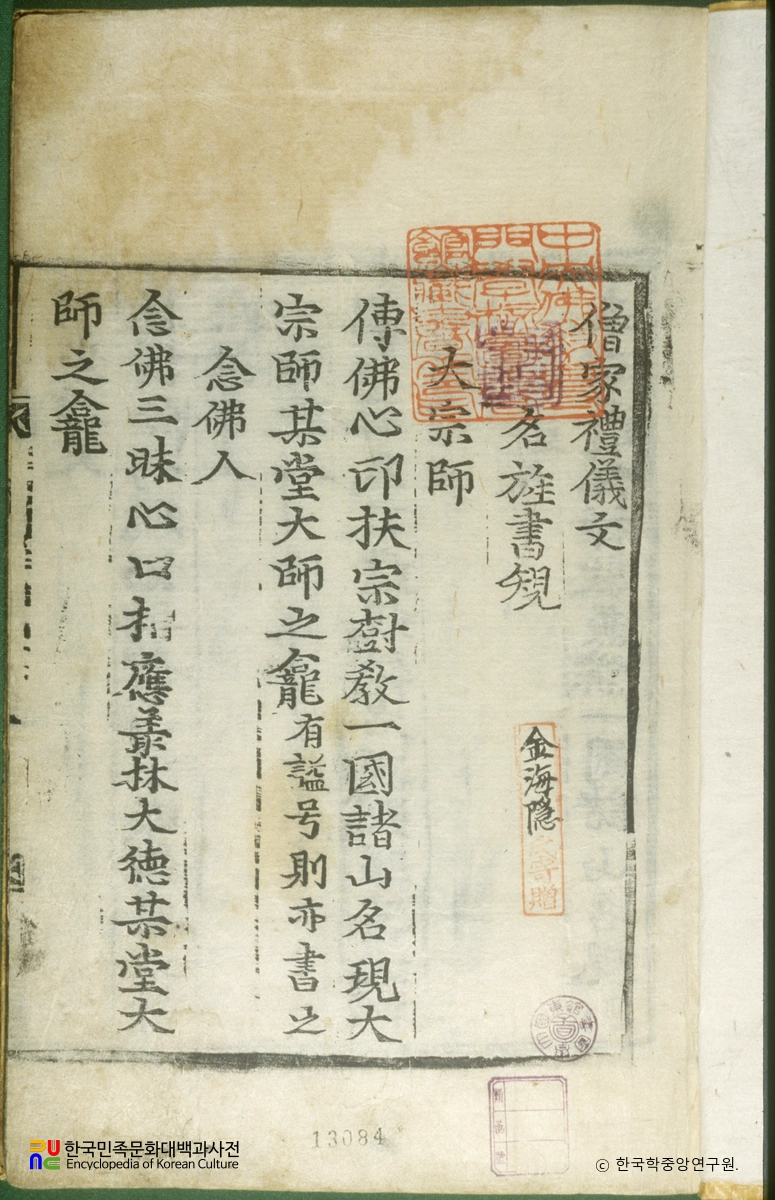 僧家禮儀文
名旌書規
大宗師
傳佛心印扶宗樹教一國諸山名現大
宗師某堂大師之龕有謚号則亦書之
念佛人
念佛三昧心口相應叢林大德某堂大
師之龕
金海隱
寄贈
13084
한국민족문화대백과사전
Encyclopedia of Korean Culture
© 한국학중앙연구원.